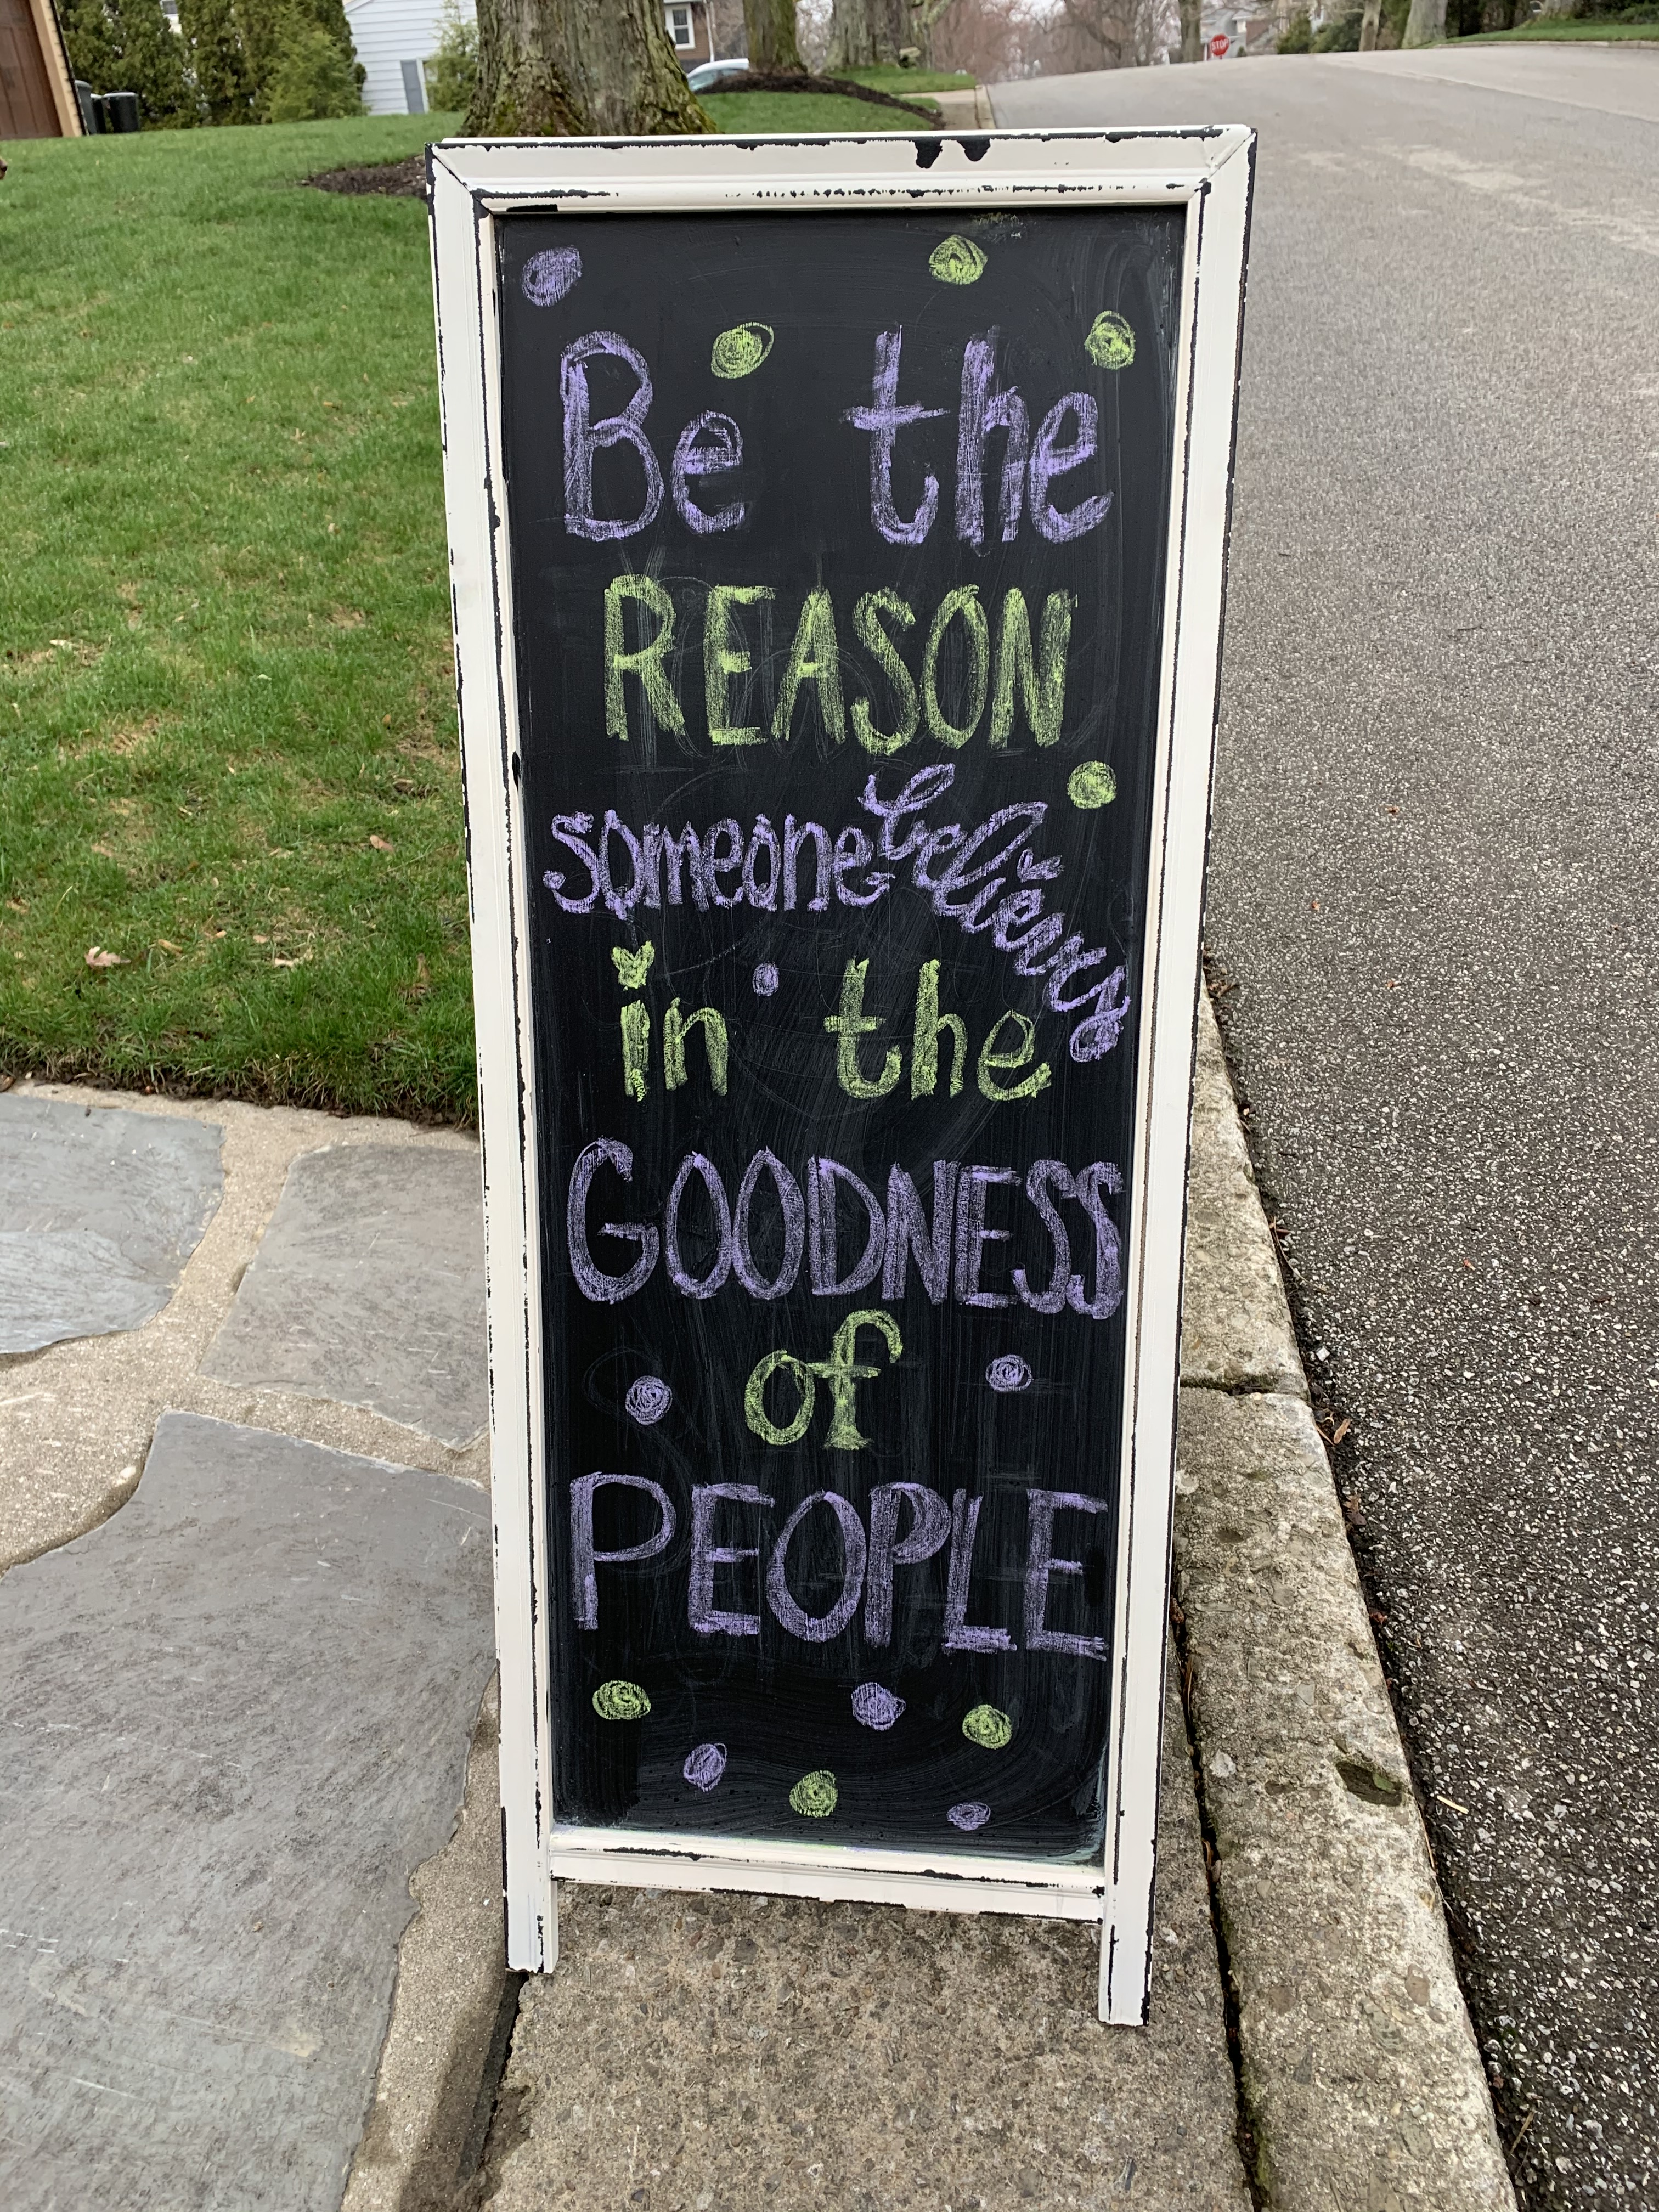 STOP
Be the
REASON
someone believes
in the
GOODNESS
of
PEOPLE